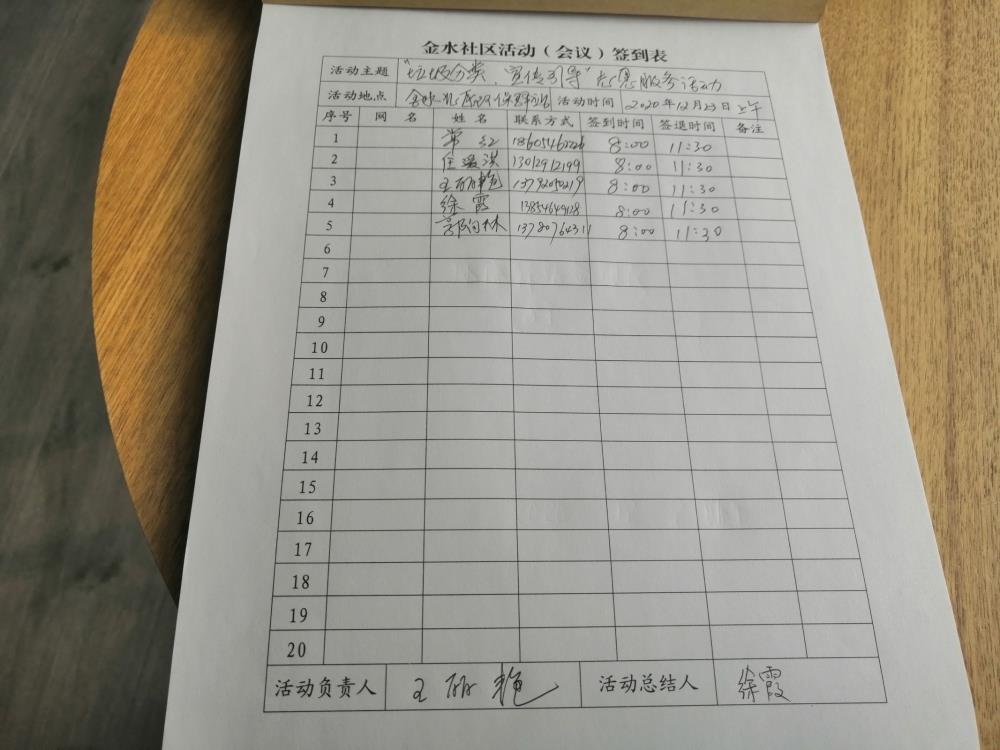 金水社区活动（会议）签到表
活动主题 "垃圾分类，宣传引导"志愿服务活动
活动地点 金水社区 活动时间 2020年12月23日上午
序号 网名 姓名 联系方式 签到时间 签退时间 备注
1 常红 18605462226 8:00 11:30
2 13012912199 8:00 11:30
3 王丽艳 13792050219 8:00 11:30
4 徐霞 8:00 11:30
5 8:00 11:30
6
7
8
9
10
11
12
13
14
15
16
17
18
19
20
活动负责人 王丽艳 活动总结人 徐霞